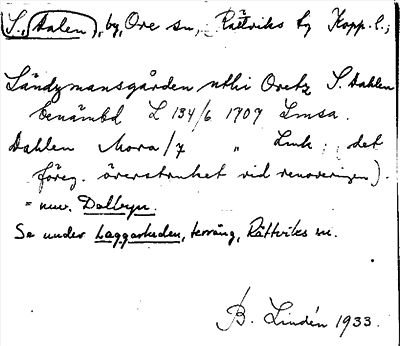 S. Dalen, by, Ore sn, Rättviks tg Kopp. l.;
Ländzmansgården uthi Oretz S. Dahlen
benämbd L 134/6 1707 Lmsa.
Dahlen Mora/7 " Lmk; det
föreg. överstruket vid renoveringen).
= nuv. Dalbyn.
Se under Laggarheden, terräng, Rättviks sn.
B. Lindén 1933.